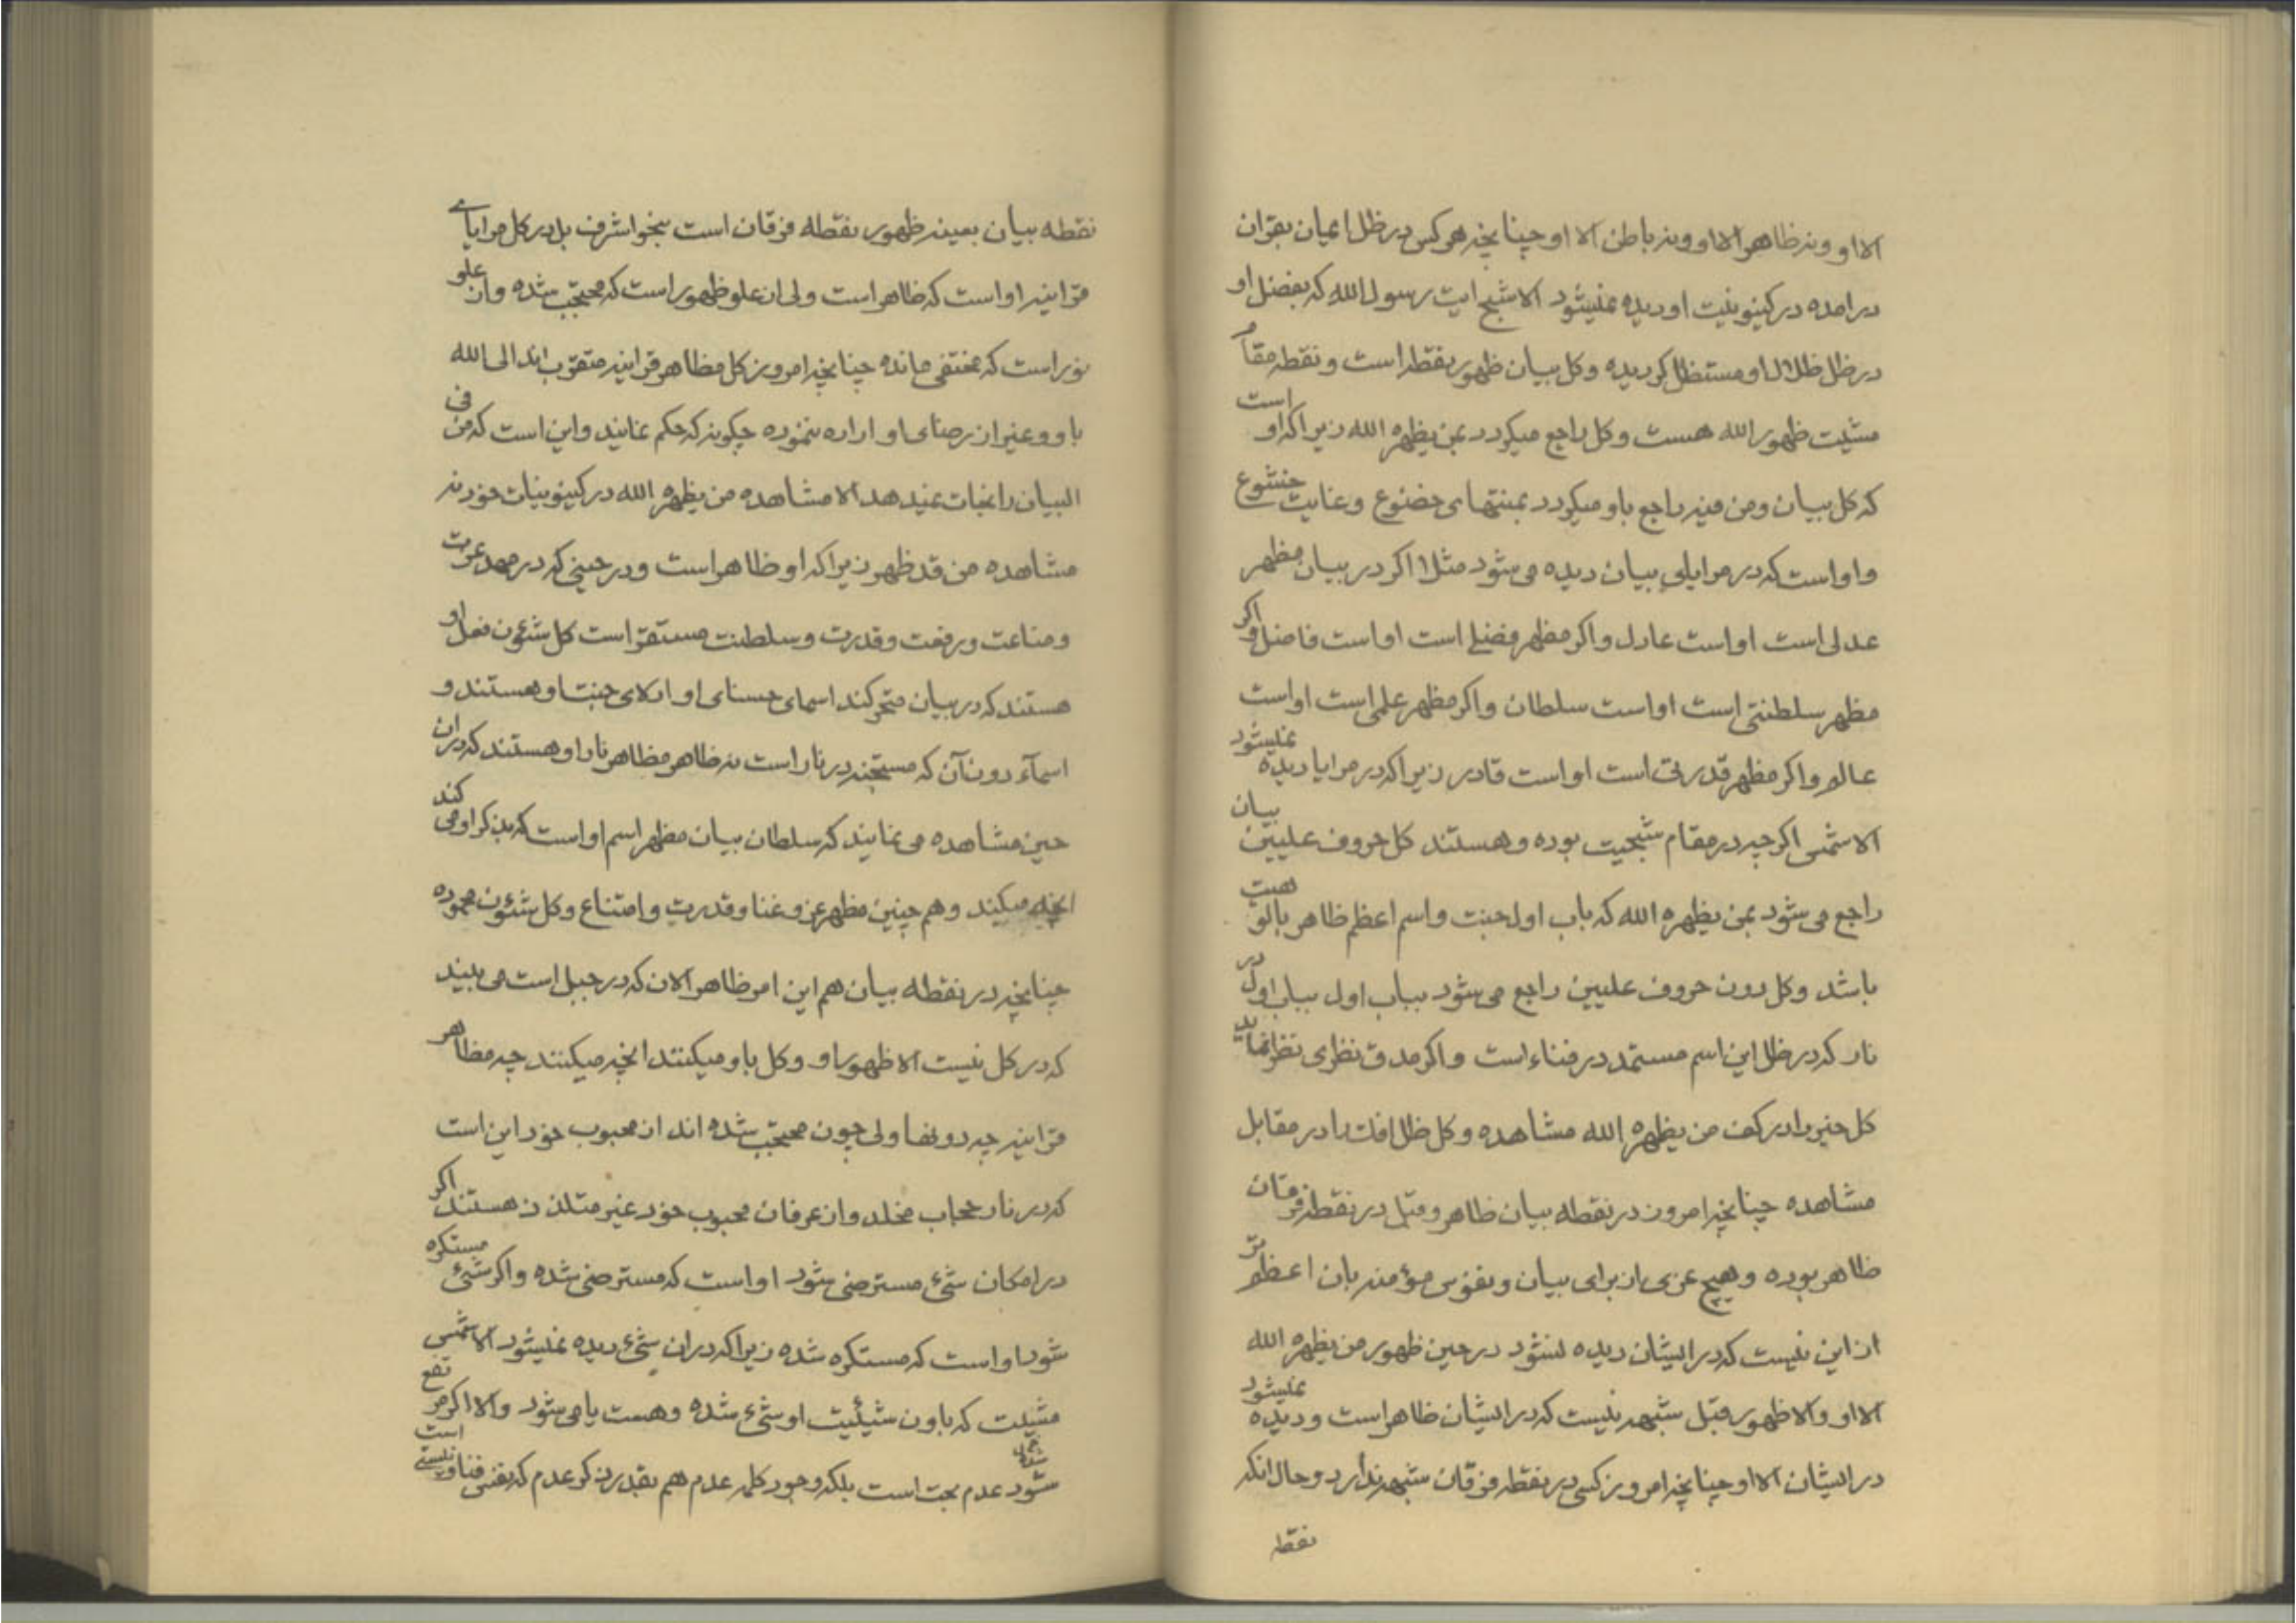 الا او و نه ظاهر الا او و نه باطن الا او چنانچه هر کس در ظل اعیان بقران
در امده در کینونیت او دیده نمیشود الا شبح ایت رسول الله که بفضل او
در ظل ظلال او مستظل کردیده و کل بیان ظهور نقطه است و نقطه مقام
مشیت ظهور الله هست و کل راجع میکردد بمن یظهره الله زیرا که او است
که کل بیان و من فیه راجع باو میکردد بمنتهای خضوع و غایت خشوع
و او است که در مرایای بیان دیده می شود مثلا اکر در بیان مظهر
عدلی است او است عادل و اکر مظهر فضلی است او است فاضل و اکر
مظهر سلطنتی است او است سلطان و اکر مظهر علمی است او است
عالم و اکر مظهر قدرتی است او است قادر زیرا که در مرایا دیده نمیشود
الا شمس اکرچه در مقام شبحیت بوده و هستند کل حروف علیین بیان
راجع می شود بمن یظهره الله که باب اول جنت و اسم اعظم ظاهر بالوهیت
باشد و کل دون حروف علیین راجع می شود بباب اول بباب اول در
نار که در ظل این اسم مستمد در فناء است و اکر مدق نظری نظر نماید
کل خیر را در کف من یظهره الله مشاهده و کل ظل افک را در مقابل
مشاهده چنانچه امروز در نقطه بیان ظاهر و قبل در نقطه فرقان
ظاهر بوده و هیچ عزی از برای بیان و نفوس مؤمنه بان اعظم تر
از این نیست که در ایشان دیده نشود در حین ظهور من یظهره الله
الا او و الا ظهور قبل شبهه نیست که در ایشان ظاهر است و دیده نمیشود
در ایشان الا او چنانچه امروز کسی در نقطه فرقان شبهه ندارد و حال انکه
نقطه
نقطه بیان بعینه ظهور نقطه فرقان است بنحو اشرف بل در کل مرایای
قرانیه او است که ظاهر است ولی ان علو ظهور است که محتجب شده و ان علو
نور است که مختفی مانده چنانچه امروز کل مظاهر قرانیه متقرب اند الی الله
باو و غیر از رضای او اراده ننموده چکونه که حکم نمایند و این است که من فی
البیان را نجات نمیدهد الا مشاهده من یظهره الله در کینونیات خود نه
مشاهده من قد ظهر زیرا که او ظاهر است و در حینی که در مهد عزت
و مناعت و رفعت و قدرت و سلطنت مستقر است کل شئون فعل او
هستند که در بیان متحرکند اسمای حسنای او ادلای جنت او هستند و
اسمآء دون آن که مستجنه در نار است نه ظاهر مظاهر نار او هستند که در ان
حین مشاهده می نمایند که سلطان بیان مظهر اسم او است که بذکر او می کند
انچه میکند و هم چنین مظهر عز و غنا و قدرت و امتناع و کل شئون محموده
چنانچه در نقطه بیان هم این امر ظاهر الان که در جبل است می بیند
که در کل نیست الا ظهور او و کل باو میکنند انچه میکنند چه مظاهر
قرانیه چه دونها ولی چون محتجب شده اند از محبوب خود این است
که در نار حجاب مخلد و از عرفان محبوب خود غیر متلذذ هستند اکر
در امکان شیء مسترضی شود او است که مسترضی شده و اکر شیئ مستکره
شود او است که مستکره شده زیرا که در ان شیء دیده نمیشود الا شمس
مشیت که باون شیئیت او شیء شده و هست یا می شود و الا اکر مرتفع
شود عدم بحت است بلکه وجود کلمه عدم هم بقدر ذکر عدم که یعنی فنا و نیستی است